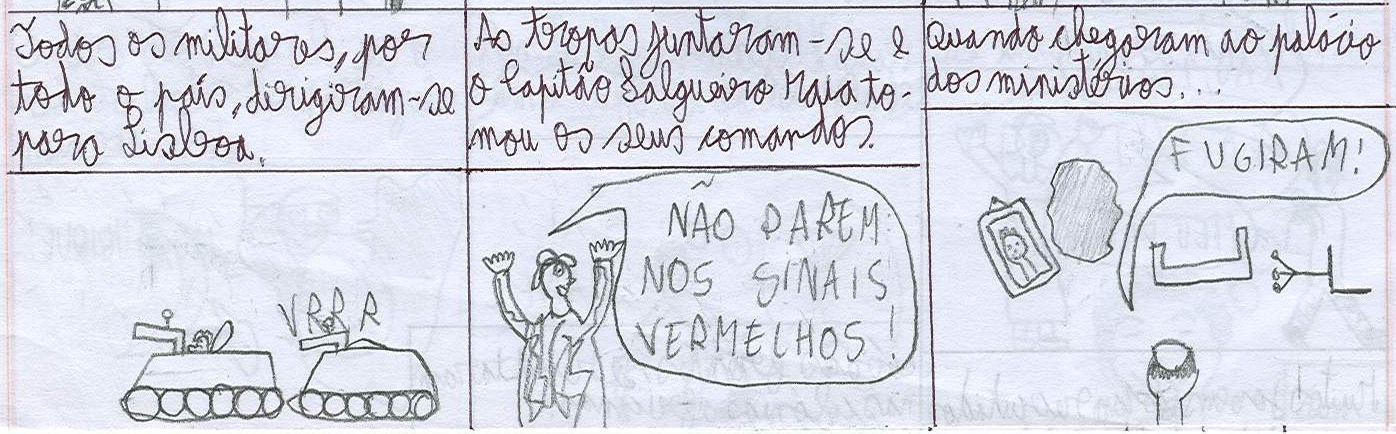 Todos os militares, por
todo o país, dirigiram-se
para Lisboa.
VRRR
As tropas juntaram-se e
o Capitão Salgueiro Maia to-
mou os seus comandos.
NÃO PAREM
NOS SINAIS
VERMELHOS!
Quando chegaram ao palácio
dos ministérios...
FUGIRAM!